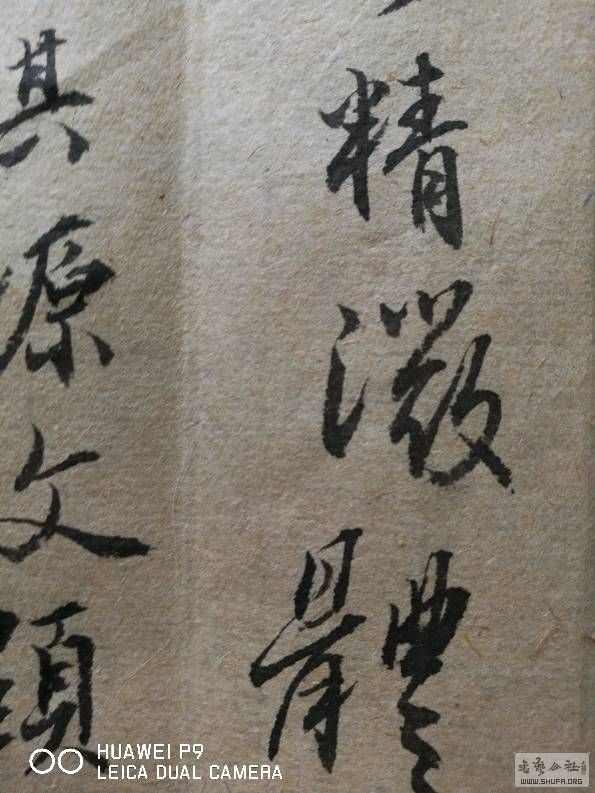 精微體
其原文
HUAWEI P9
LEICA DUAL CAMERA
书艺公社
WWW.SHUFA.ORG